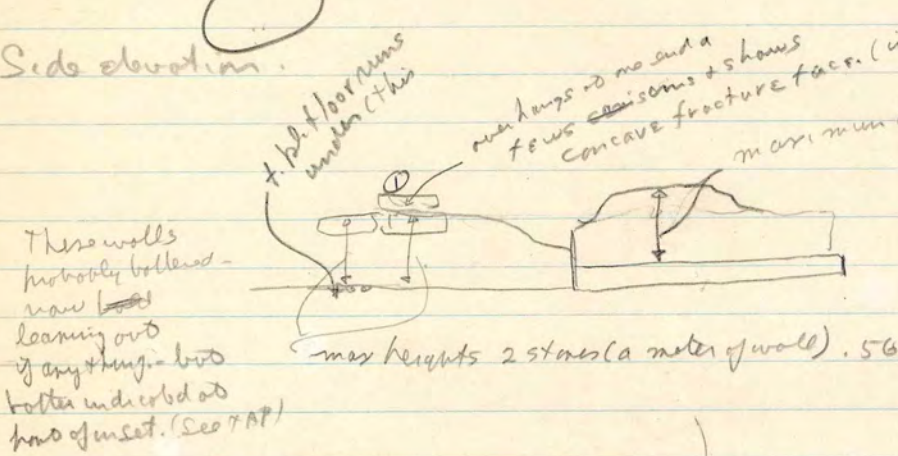 Side elevation.
t. ble floor runs
under (this
overhangs at one end a
few cms & shows
concave fracture face. (
maximum
①
These walls
probably battered -
now
leaning out
if anything - but
batter indicated at
point of inset. (See
max heights 2 stones (a meter of wall) .56